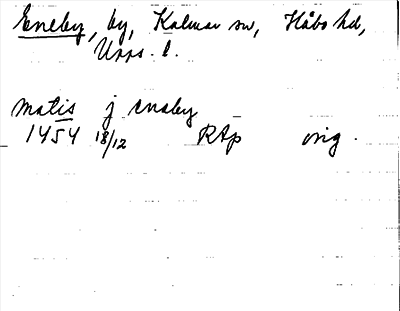 Eneby, by, Kalmar sn, Håbo hd,
Upps. l.
matis j eneby
1454 18/12 RAp orig.